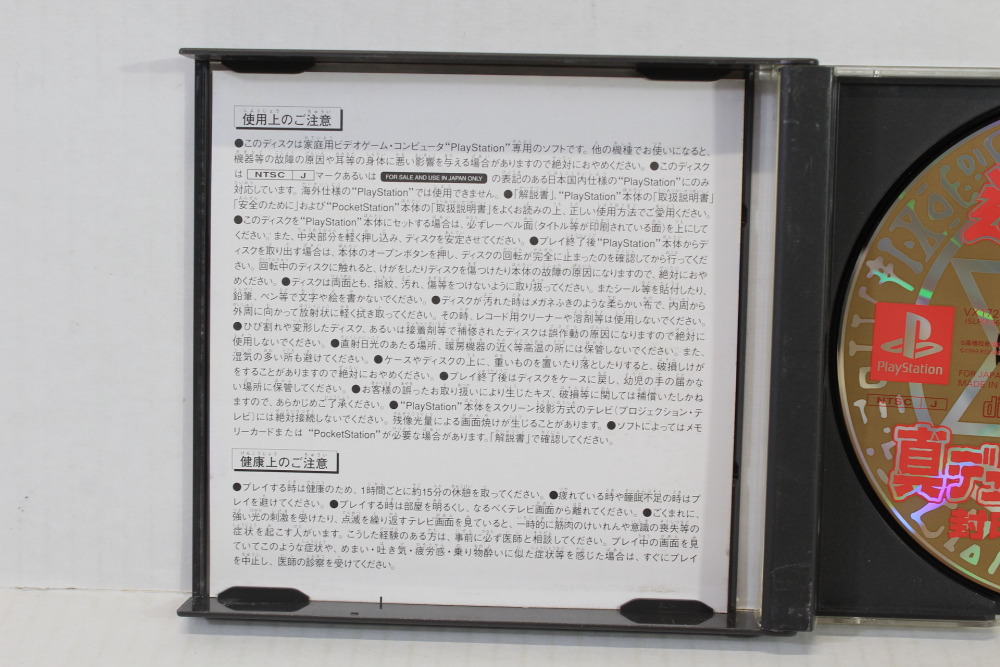 使用上のご注意
●このディスクは家庭用ビデオゲーム・コンピュータ“PlayStation”専用のソフトです。他の機種でお使いになると、
機器等の故障の原因や耳等の身体に悪い影響を与える場合がありますので絶対におやめください。●このディスク
は NTSC J マークあるいは FOR SALE AND USE IN JAPAN ONLY の表記のある日本国内仕様の“PlayStation”にのみ
対応しています。海外仕様の“PlayStation”では使用できません。●「解説書」、“PlayStation”本体の「取扱説明書」
「安全のために」および“PocketStation”本体の「取扱説明書」をよくお読みの上、正しい使用方法でご愛用ください。
●このディスクを“PlayStation”本体にセットする場合は、必ずレーベル面(タイトル等が印刷されている面)を上にして
ください。また、中央部分を軽く押し込み、ディスクを安定させてください。●プレイ終了後“PlayStation”本体からデ
ィスクを取り出す場合は、本体のオープンボタンを押し、ディスクの回転が完全に止まったのを確認してから行ってくだ
さい。回転中のディスクに触れると、けがをしたりディスクを傷つけたり本体の故障の原因になりますので、絶対におや
めください。●ディスクは両面とも、指紋、汚れ、傷等をつけないように取り扱ってください。またシール等を貼付したり、
鉛筆、ペン等で文字や絵を書かないでください。●ディスクが汚れた時はメガネふきのような柔らかい布で、内周から
外周に向かって放射状に軽く拭き取ってください。その時、レコード用クリーナーや溶剤等は使用しないでください。
●ひび割れや変形したディスク、あるいは接着剤等で補修されたディスクは誤作動の原因になりますので絶対に
使用しないでください。●直射日光のあたる場所、暖房機器の近く等高温の所には保管しないでください。また、
湿気の多い所も避けてください。●ケースやディスクの上に、重いものを置いたり落としたりすると、破損しけが
をすることがありますので絶対におやめください。●プレイ終了後はディスクをケースに戻し、幼児の手の届かな
い場所に保管してください。●お客様の誤ったお取り扱いにより生じたキズ、破損等に関しては補償いたしかね
ますので、あらかじめご了承ください。●“PlayStation”本体をスクリーン投影方式のテレビ(プロジェクション・テ
レビ)には絶対接続しないでください。残像光量による画面焼けが生じることがあります。●ソフトによってはメモ
リーカードまたは “PocketStation”が必要な場合があります。「解説書」で確認してください。
健康上のご注意
●プレイする時は健康のため、1時間ごとに約15分の休憩を取ってください。●疲れている時や睡眠不足の時はプ
レイを避けてください。●プレイする時は部屋を明るくし、なるべくテレビ画面から離れてください。●ごくまれに、
強い光の刺激を受けたり、点滅を繰り返すテレビ画面を見ていると、一時的に筋肉のけいれんや意識の喪失等の
症状を起こす人がいます。こうした経験のある方は、事前に必ず医師と相談してください。プレイ中の画面を見
ていてこのような症状や、めまい・吐き気・疲労感・乗り物酔いに似た症状等を感じた場合は、すぐにプレイ
を中止し、医師の診察を受けてください。
PlayStation
NTSC J
FOR JAPA
MADE IN
真デュ
封